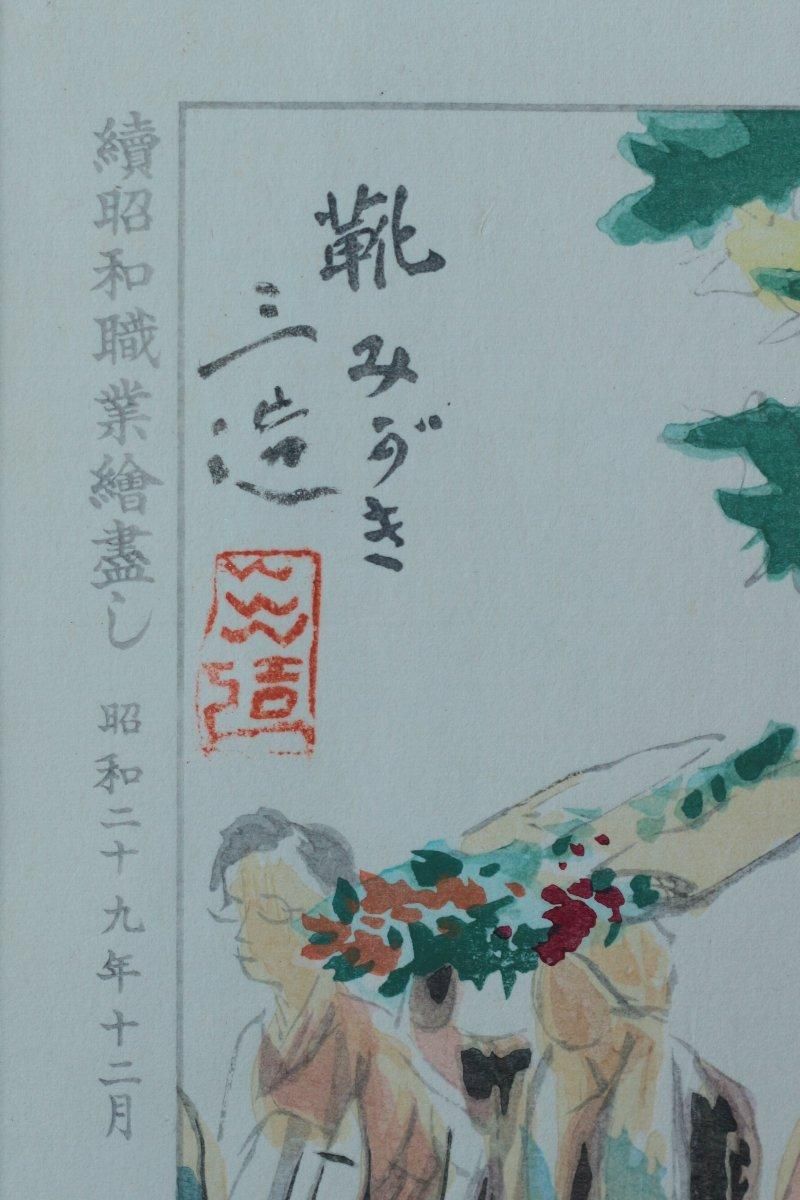 靴みがき
三造
三造
續昭和職業繪盡し 昭和二十九年十二月